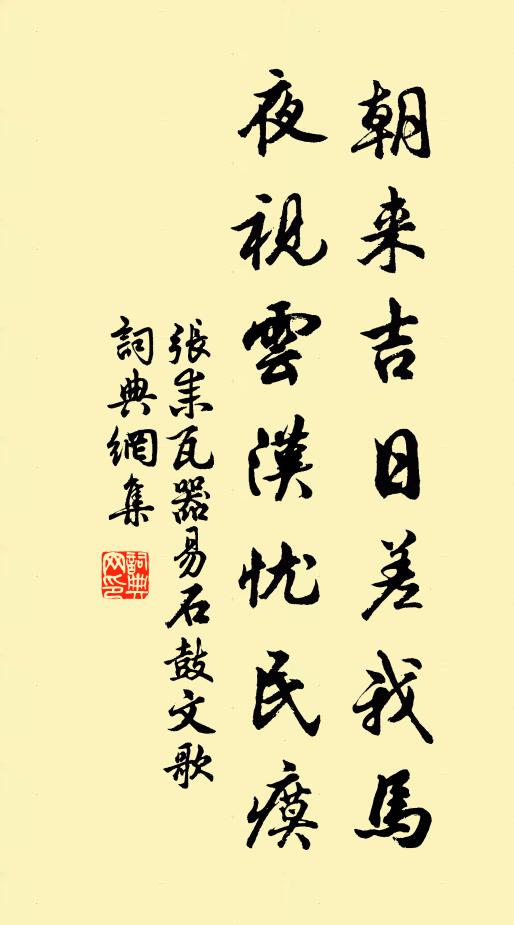 朝来吉日差我馬
夜視雲漢忧民瘼
張耒瓦器易石鼓文歌
詞典網集
詞典网印